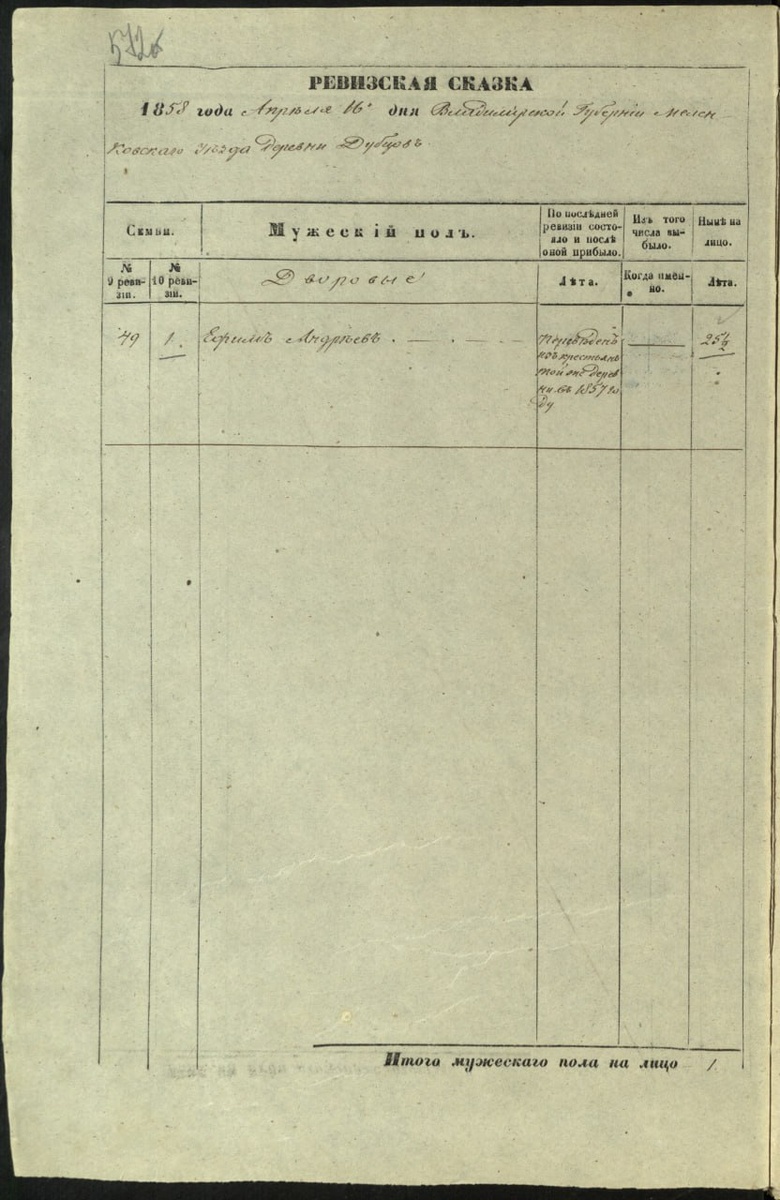 РЕВИЗСКАЯ СКАЗКА
1858 года Апрѣля 16 дня Владимірской Губерніи Мелен-
ковскаго уѣзда деревни Дубцовъ
Семьи.
Мужескій полъ.
По послѣдней
ревизіи состо-
яло и послѣ
оной прибыло.
Изъ того
числа вы-
было.
Нынѣ на
лицо.
№
9 реви-
зіи.
№
10 реви-
зіи.
Дворовые
Лѣта.
Когда имен-
но.
Лѣта.
49
1.
Ефимъ Андрѣевъ.
Перевѣденъ
изъ крестьянъ
той же дерев
ни въ 1857 го
ду
25½
Итого мужескаго пола на лицо
1.